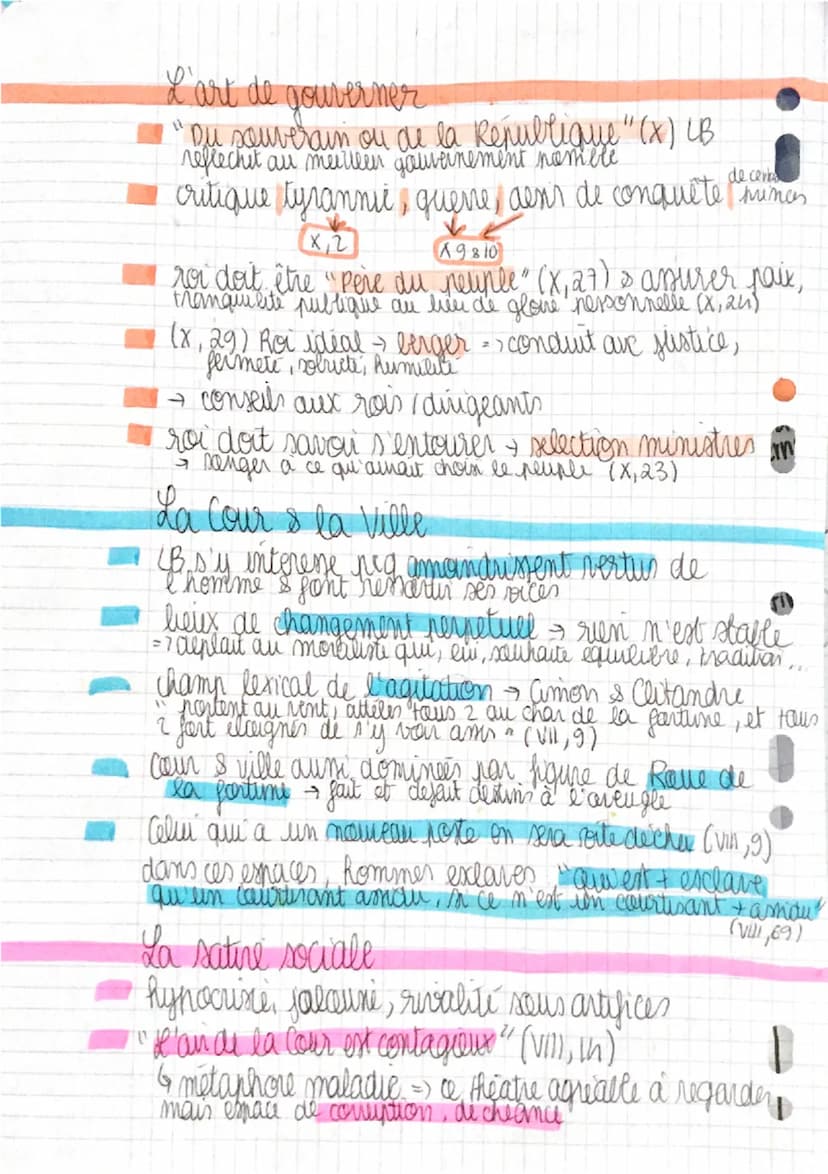 L'art de gouverner
"Du souverain ou de la République" (X) LB
réfléchit au meilleur gouvernement possible
critique tyrannie, guerre, désir de conquête de certains princes
X,2 X 9 & 10
roi doit être "Père du peuple" (X,27) → assurer paix,
tranquilité publique au lieu de gloire personnelle (X,24)
(X, 29) Roi idéal → berger => conduit avc justice,
fermeté, sobriété, humilité
→ conseils aux rois / dirigeants
roi doit savoir s'entourer → selection ministres
→ songer à ce qu'aurait choisi le peuple (X,23)
La Cour & la Ville
LB s'y intéresse pcq amoindrissent vertus de
l'homme & font ressortir ses vices
lieux de changement perpetuel → rien n'est stable
=> déplait au moraliste qui, lui, souhaite équilibre, tradition...
champ lexical de l'agitation → Cimon & Clitandre
"portent au vent, attelés tous 2 au char de la fortune, et tous
2 fort éloignés de s'y voir assis" (VIII,9)
Cour & ville aussi dominées par figure de Roue de
la fortune → fait et défait destins à l'aveugle
Celui qui a un nouveau poste en sera vite déchu (VIII,9)
dans ces espaces, hommes esclaves "qui est + esclave
qu'un courtisant assidu, si ce n'est un courtisant + assidu"
(VIII,69)
La satire sociale
hypocrisie, jalousie, rivalité sous artifices
"L'air de la Cour est contagieux" (VIII,14)
↳ métaphore maladie => ce théatre agréable à regarder
mais espace de corruption, déchéance